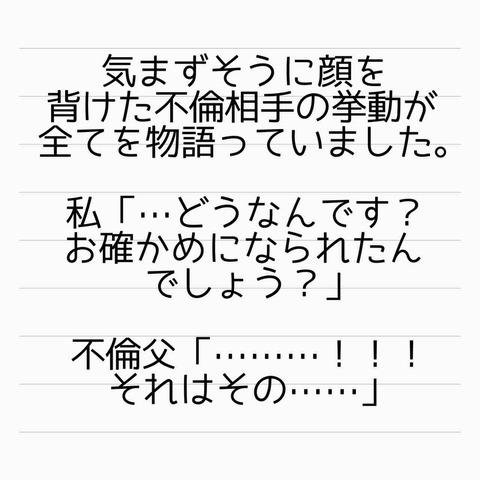 気まずそうに顔を
背けた不倫相手の挙動が
全てを物語っていました。
私「…どうなんです？
お確かめになられたん
でしょう？」
不倫父「………！！！
それはその……」